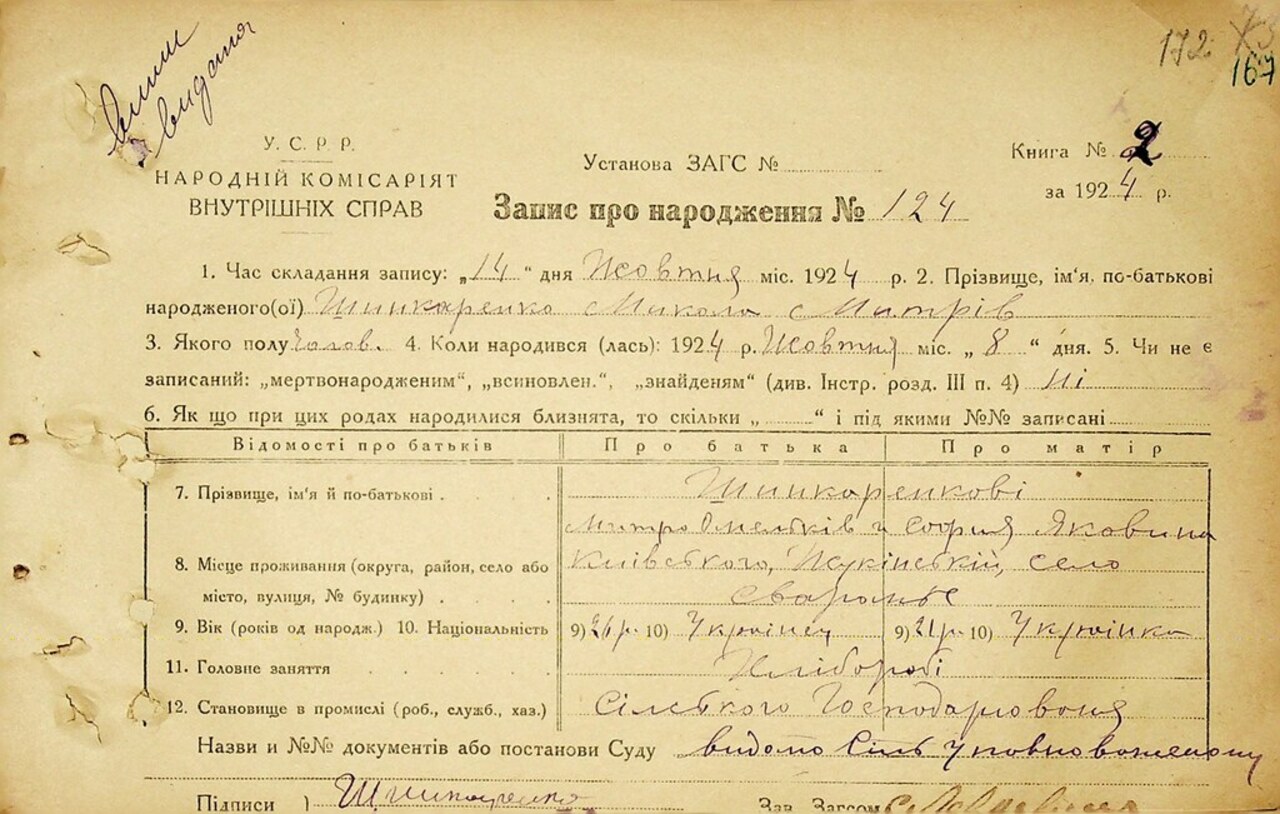 172 73
167
видана
У. С. Р. Р.
НАРОДНІЙ КОМІСАРІЯТ
ВНУТРІШНІХ СПРАВ
Установа ЗАГС №
Книга № 2
за 1924 р.
Запис про народження № 124
1. Час складання запису: „14“ дня Жовтня міс. 1924 р. 2. Прізвище, ім'я, по-батькові
народженого(ої) Шинкаренко Микола Митрів
3. Якого полу Чолов. 4. Коли народився (лась): 1924 р. Жовтня міс. „8“ дня. 5. Чи не є
записаний: „мертвонародженим“, „всиновлен.“, „знайденям“ (див. Інстр. розд. III п. 4) Ні
6. Як що при цих родах народилися близнята, то скільки „ “ і під якими №№ записані
Відомості про батьків Про батька Про матір
7. Прізвище, ім'я й по-батькові Шинкаренкові
Митро Омельків и София Яковина
8. Місце проживання (округа, район, село або Київського, Жукінській, село
місто, вулиця, № будинку) Сваромьє
9. Вік (років од народж.) 10. Національність 9) 26 р. 10) Українец 9) 21 р. 10) Українка
11. Головне заняття Хлібороби
12. Становище в промислі (роб., служб., хаз.) Сільского Господарювоня
Назви и №№ документів або постанови Суду видомо Сіль Уповновоженому
Підписи } Шинкаренко Зав. Загсом